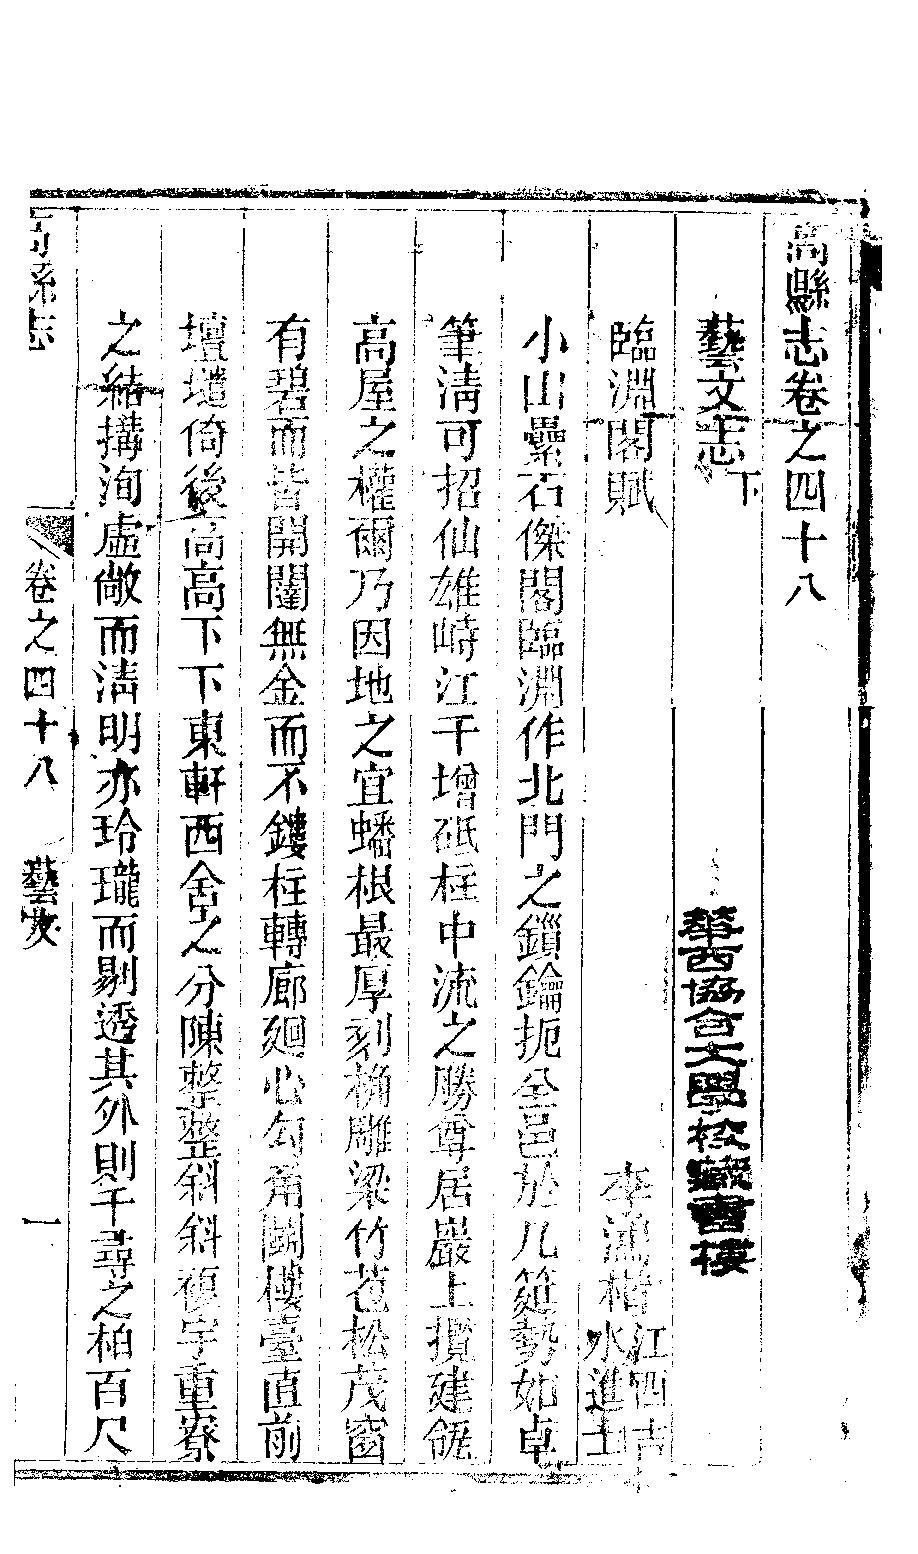 高縣志卷之四十八
藝文志下
臨淵閣賦
李鴻楷江西吉水進士
小山壘石傑閣臨淵作北門之鎖鑰扼全邑於几筵勢如卓
筆淸可招仙雄峙江干增砥柱中流之勝尊居巖上攬建瓴
高屋之權爾乃因地之宜蟠根最厚刻桷雕梁竹苞松茂窗
有碧而皆開闥無金而不鏤柱轉廊廻心勾角鬭樓臺直前
壇壝倚後高高下下東軒西舍之分陳整整斜斜複宇重寮
之結搆洵虛敞而淸明亦玲瓏而剔透其外則千尋之柏百尺
高縣志
卷之四十八
藝文
一
華西協合大學校藏書樓